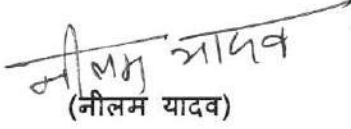 नीलम यादव
(नीलम यादव)